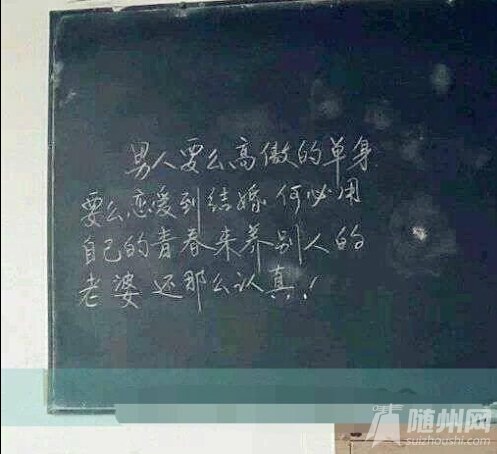 男人要么高傲的单身
要么恋爱到结婚.何必用
自己的青春来养别人的
老婆还那么认真!
随州网
suizhoushi.com